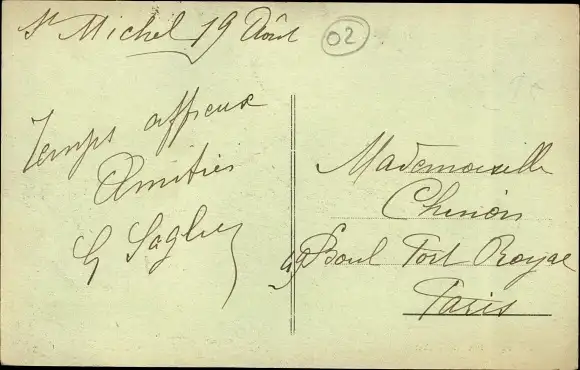 St Michel 19 Août
02
Temps affreux
Amitiés
G
Mademoiselle
Chinois
49 Boul Port Royal
Paris